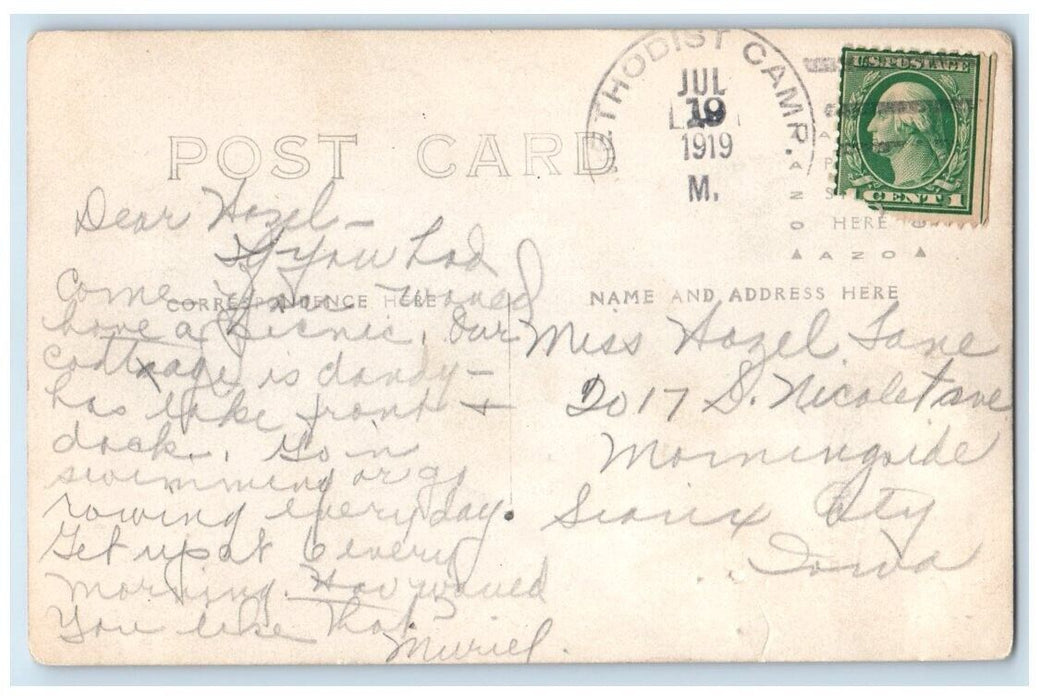 THODIST CAMP.
JUL
19
1919
M.
U.S. POSTAGE
1 CENT 1
POST CARD
HERE
AZO
CORRESPONDENCE HERE
NAME AND ADDRESS HERE
Dear Hazel —
If you had
come you would
have a picnic. Our
cottage is dandy —
has lake front +
dock. Go in
swimming or go
rowing every day.
Get up at 6 every
morning. How would
You like that?
Muriel.
Miss Hazel Lane
2017 S. Nicolet ave
Morningside
Sioux City
Iowa